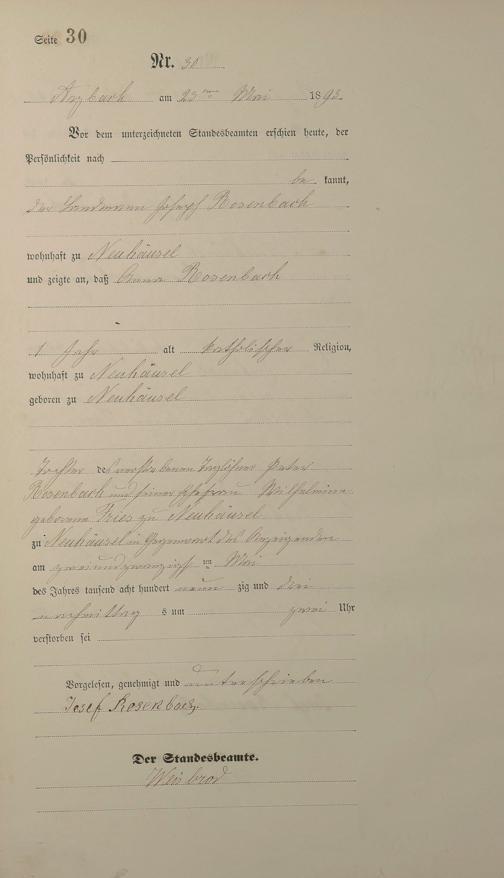 Seite 30
Nr. 30
Arzbach am 23ten Mai 1893.
Vor dem unterzeichneten Standesbeamten erschien heute, der
Persönlichkeit nach
be kannt,
der Landmann Joseph Rosenbach
wohnhaft zu Neuhäusel
und zeigte an, daß Anna Rosenbach
1 Jahr alt katholischer Religion,
wohnhaft zu Neuhäusel
geboren zu Neuhäusel
Tochter des verstorbenen Taglöhner Peter
Rosenbach und seiner Ehefrau Wilhelmine
geborene Fries zu Neuhäusel
zu Neuhäusel in Gegenwart des Anzeigenden
am zweiundzwanzigsten Mai
des Jahres tausend acht hundert neun zig und drei
nachmittag s um zwei Uhr
verstorben sei
Vorgelesen, genehmigt und unterschrieben
Josef Rosenbach
Der Standesbeamte.
Weisbrod